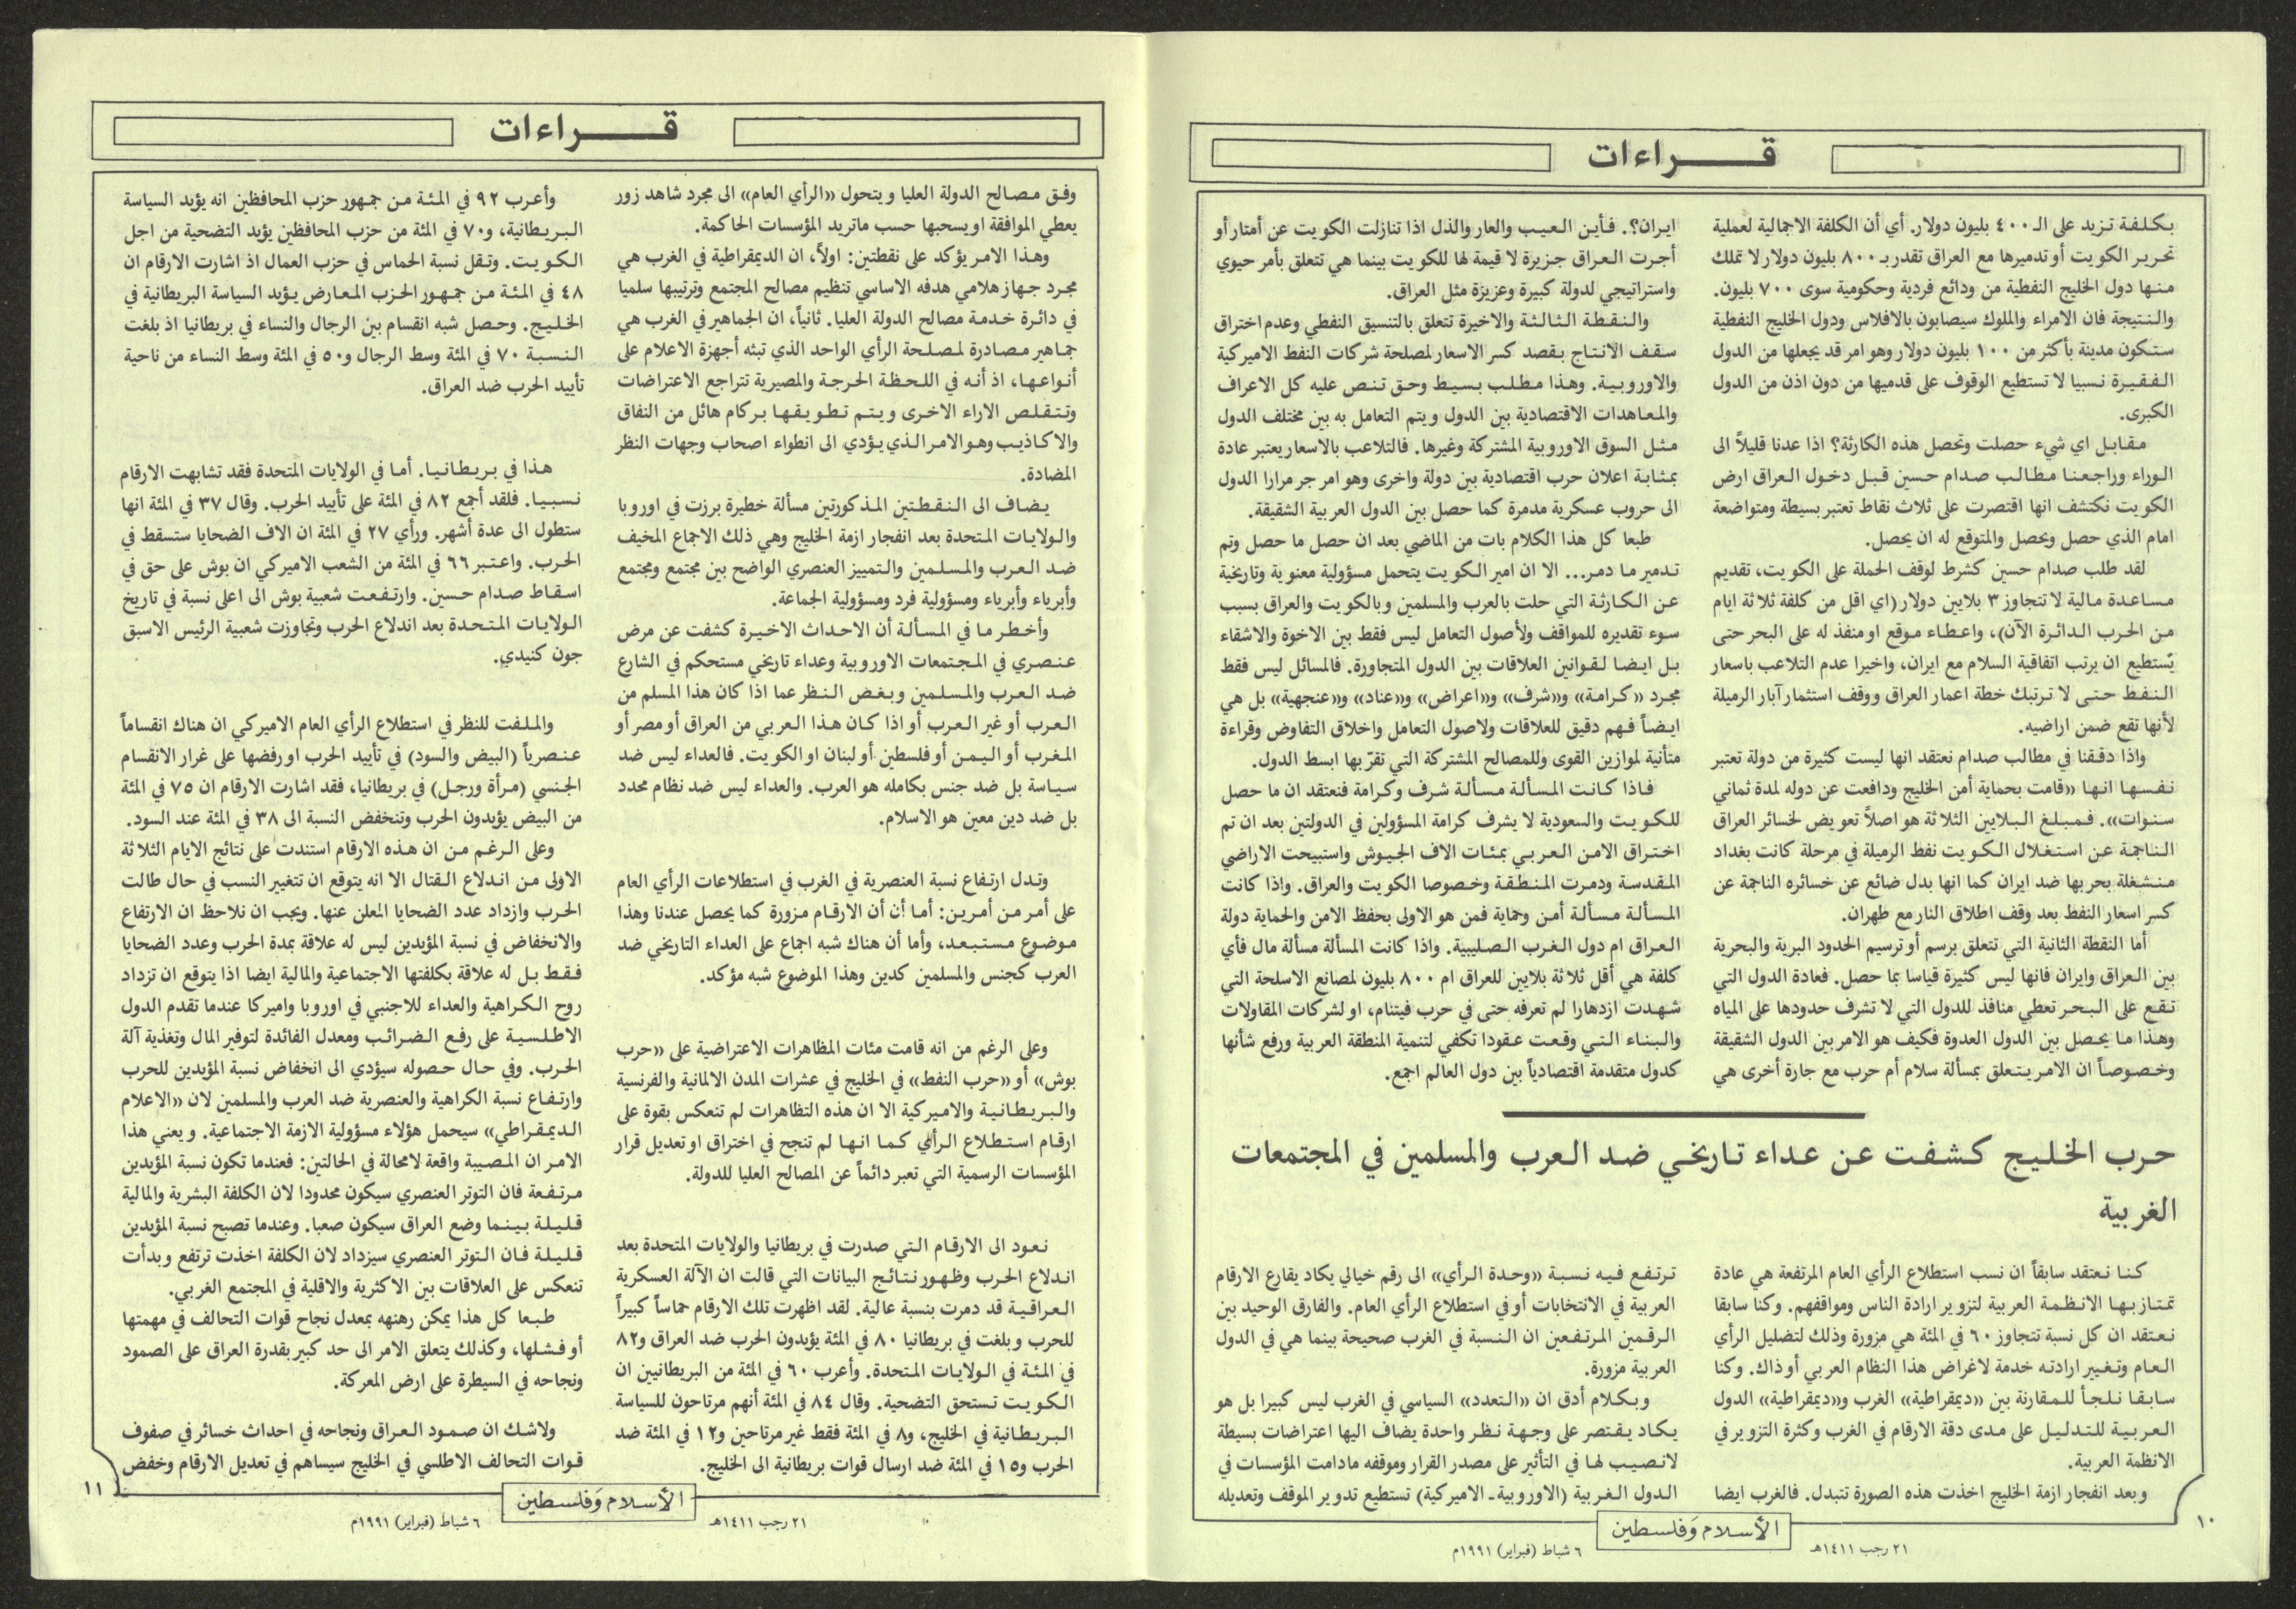 قـــــراءات
بكلفة تزيد على الـ ٤٠٠ بليون دولار. أي أن الكلفة الاجمالية لعملية
تحرير الكويت أو تدميرها مع العراق تقدر بـ ٨٠٠ بليون دولار لا تملك
منها دول الخليج النفطية من ودائع فردية وحكومية سوى ٧٠٠ بليون.
والنتيجة فان الامراء والملوك سيصابون بالافلاس ودول الخليج النفطية
ستكون مدينة بأكثر من ١٠٠ بليون دولار وهو امر قد يجعلها من الدول
الفقيرة نسبيا لا تستطيع الوقوف على قدميها من دون اذن من الدول
الكبرى.
مقابل اي شيء حصلت وتحصل هذه الكارثة؟ اذا عدنا قليلاً الى
الوراء وراجعنا مطالب صدام حسين قبل دخول العراق ارض
الكويت نكتشف انها اقتصرت على ثلاث نقاط تعتبر بسيطة ومتواضعة
امام الذي حصل ويحصل والمتوقع له ان يحصل.
لقد طلب صدام حسين كشرط لوقف الحملة على الكويت، تقديم
مساعدة مالية لا تتجاوز ٣ بلايين دولار (اي اقل من كلفة ثلاثة ايام
من الحرب الدائرة الآن)، واعطاء موقع او منفذ له على البحر حتى
يستطيع ان يرتب اتفاقية السلام مع ايران، واخيرا عدم التلاعب باسعار
النفط حتى لا ترتبك خطة اعمار العراق ووقف استثمار آبار الرميلة
لأنها تقع ضمن اراضيه.
واذا دققنا في مطالب صدام نعتقد انها ليست كثيرة من دولة تعتبر
نفسها انها «قامت بحماية أمن الخليج ودافعت عن دوله لمدة ثماني
سنوات». فمبلغ البلايين الثلاثة هو اصلاً تعويض لخسائر العراق
الناجمة عن استغلال الكويت نفط الرميلة في مرحلة كانت بغداد
منشغلة بحربها ضد ايران كما انها بدل ضائع عن خسائره الناجمة عن
كسر اسعار النفط بعد وقف اطلاق النار مع طهران.
أما النقطة الثانية التي تتعلق برسم أو ترسيم الحدود البرية والبحرية
بين العراق وايران فانها ليس كثيرة قياسا بما حصل. فعادة الدول التي
تقع على البحر تعطي منافذ للدول التي لا تشرف حدودها على المياه
وهذا ما يحصل بين الدول العدوة فكيف هو الامر بين الدول الشقيقة
وخصوصاً ان الامر يتعلق بمسألة سلام أم حرب مع جارة أخرى هي
ايران؟. فأين العيب والعار والذل اذا تنازلت الكويت عن أمتار أو
أجرت العراق جزيرة لا قيمة لها للكويت بينما هي تتعلق بأمر حيوي
واستراتيجي لدولة كبيرة وعزيزة مثل العراق.
والنقطة الثالثة والاخيرة تتعلق بالتنسيق النفطي وعدم اختراق
سقف الانتاج بقصد كسر الاسعار لمصلحة شركات النفط الاميركية
والاوروبية. وهذا مطلب بسيط وحق تنص عليه كل الاعراف
والمعاهدات الاقتصادية بين الدول ويتم التعامل به بين مختلف الدول
مثل السوق الاوروبية المشتركة وغيرها. فالتلاعب بالاسعار يعتبر عادة
بمثابة اعلان حرب اقتصادية بين دولة واخرى وهو امر جر مرارا الدول
الى حروب عسكرية مدمرة كما حصل بين الدول العربية الشقيقة.
طبعا كل هذا الكلام بات من الماضي بعد ان حصل ما حصل وتم
تدمير ما دمر... الا ان امير الكويت يتحمل مسؤولية معنوية وتاريخية
عن الكارثة التي حلت بالعرب والمسلمين وبالكويت والعراق بسبب
سوء تقديره للمواقف ولأصول التعامل ليس فقط بين الاخوة والاشقاء
بل ايضا لقوانين العلاقات بين الدول المتجاورة. فالمسائل ليس فقط
مجرد «كرامة» و«شرف» و«اعراض» و«عناد» و«عنجهية» بل هي
ايضاً فهم دقيق للعلاقات ولاصول التعامل واخلاق التفاوض وقراءة
متأنية لموازين القوى وللمصالح المشتركة التي تقرّ بها ابسط الدول.
فاذا كانت المسألة مسألة شرف وكرامة فنعتقد ان ما حصل
للكويت والسعودية لا يشرف كرامة المسؤولين في الدولتين بعد ان تم
اختراق الامن العربي بمئات الاف الجيوش واستبيحت الاراضي
المقدسة ودمرت المنطقة وخصوصا الكويت والعراق. واذا كانت
المسألة مسألة أمن وحماية فمن هو الاولى بحفظ الامن والحماية دولة
العراق ام دول الغرب الصليبية. واذا كانت المسألة مسألة مال فأي
كلفة هي أقل ثلاثة بلايين للعراق ام ٨٠٠ بليون لمصانع الاسلحة التي
شهدت ازدهارا لم تعرفه حتى في حرب فيتنام، او لشركات المقاولات
والبناء التي وقعت عقودا تكفي لتنمية المنطقة العربية ورفع شأنها
كدول متقدمة اقتصادياً بين دول العالم اجمع.
حرب الخليج كشفت عن عداء تاريخي ضد العرب والمسلمين في المجتمعات
الغربية
كنا نعتقد سابقاً ان نسب استطلاع الرأي العام المرتفعة هي عادة
تمتاز بها الانظمة العربية لتزوير ارادة الناس ومواقفهم. وكنا سابقا
نعتقد ان كل نسبة تتجاوز ٦٠ في المئة هي مزورة وذلك لتضليل الرأي
العام وتغيير ارادته خدمة لاغراض هذا النظام العربي أو ذاك. وكنا
سابقا نلجأ للمقارنة بين «ديمقراطية» الغرب و«ديمقراطية» الدول
العربية للتدليل على مدى دقة الارقام في الغرب وكثرة التزوير في
الانظمة العربية.
وبعد انفجار ازمة الخليج اخذت هذه الصورة تتبدل. فالغرب ايضا
ترتفع فيه نسبة «وحدة الرأي» الى رقم خيالي يكاد يقارع الارقام
العربية في الانتخابات أو في استطلاع الرأي العام. والفارق الوحيد بين
الرقمين المرتفعين ان النسبة في الغرب صحيحة بينما هي في الدول
العربية مزورة.
وبكلام أدق ان «التعدد» السياسي في الغرب ليس كبيرا بل هو
يكاد يقتصر على وجهة نظر واحدة يضاف اليها اعتراضات بسيطة
لانصيب لها في التأثير على مصدر القرار وموقفه مادامت المؤسسات في
الدول الغربية (الاوروبية ـ الاميركية) تستطيع تدوير الموقف وتعديله
١٠
الأسلام وَفلسطين
٢١ رجب ١٤١١هـ
٦ شباط (فبراير) ١٩٩١م
قـــــراءات
وفق مصالح الدولة العليا ويتحول «الرأي العام» الى مجرد شاهد زور
يعطي الموافقة او يسحبها حسب ماتريد المؤسسات الحاكمة.
وهذا الامر يؤكد على نقطتين: اولاً، ان الديمقراطية في الغرب هي
مجرد جهاز هلامي هدفه الاساسي تنظيم مصالح المجتمع وترتيبها سلميا
في دائرة خدمة مصالح الدولة العليا. ثانياً، ان الجماهير في الغرب هي
جماهير مصادرة لمصلحة الرأي الواحد الذي تبثه أجهزة الاعلام على
أنواعها، اذ أنه في اللحظة الحرجة والمصيرية تتراجع الاعتراضات
وتتقلص الاراء الاخرى ويتم تطويقها بركام هائل من النفاق
والاكاذيب وهو الامر الذي يؤدي الى انطواء اصحاب وجهات النظر
المضادة.
يضاف الى النقطتين المذكورتين مسألة خطيرة برزت في اوروبا
والولايات المتحدة بعد انفجار ازمة الخليج وهي ذلك الاجماع المخيف
ضد العرب والمسلمين والتمييز العنصري الواضح بين مجتمع ومجتمع
وأبرياء وأبرياء ومسؤولية فرد ومسؤولية الجماعة.
وأخطر ما في المسألة أن الاحداث الاخيرة كشفت عن مرض
عنصري في المجتمعات الاوروبية وعداء تاريخي مستحكم في الشارع
ضد العرب والمسلمين وبغض النظر عما اذا كان هذا المسلم من
العرب أو غير العرب أو اذا كان هذا العربي من العراق أو مصر أو
المغرب أو اليمن أو فلسطين أو لبنان او الكويت. فالعداء ليس ضد
سياسة بل ضد جنس بكامله هو العرب. والعداء ليس ضد نظام محدد
بل ضد دين معين هو الاسلام.
وتدل ارتفاع نسبة العنصرية في الغرب في استطلاعات الرأي العام
على أمر من أمرين: أما أن أن الارقام مزورة كما يحصل عندنا وهذا
موضوع مستبعد، وأما أن هناك شبه اجماع على العداء التاريخي ضد
العرب كجنس والمسلمين كدين وهذا الموضوع شبه مؤكد.
وعلى الرغم من انه قامت مئات المظاهرات الاعتراضية على «حرب
بوش» أو «حرب النفط» في الخليج في عشرات المدن الالمانية والفرنسية
والبريطانية والاميركية الا ان هذه التظاهرات لم تنعكس بقوة على
ارقام استطلاع الرأي كما انها لم تنجح في اختراق او تعديل قرار
المؤسسات الرسمية التي تعبر دائماً عن المصالح العليا للدولة.
نعود الى الارقام التي صدرت في بريطانيا والولايات المتحدة بعد
اندلاع الحرب وظهور نتائج البيانات التي قالت ان الآلة العسكرية
العراقية قد دمرت بنسبة عالية. لقد اظهرت تلك الارقام حماساً كبيراً
للحرب وبلغت في بريطانيا ٨٠ في المئة يؤيدون الحرب ضد العراق و٨٢
في المئة في الولايات المتحدة. وأعرب ٦٠ في المئة من البريطانيين ان
الكويت تستحق التضحية. وقال ٨٤ في المئة أنهم مرتاحون للسياسة
البريطانية في الخليج، و٨ في المئة فقط غير مرتاحين و١٢ في المئة ضد
الحرب و١٥ في المئة ضد ارسال قوات بريطانية الى الخليج.
وأعرب ٩٢ في المئة من جمهور حزب المحافظين انه يؤيد السياسة
البريطانية، و٧٠ في المئة من حزب المحافظين يؤيد التضحية من اجل
الكويت. وتقل نسبة الحماس في حزب العمال اذ اشارت الارقام ان
٤٨ في المئة من جمهور الحزب المعارض يؤيد السياسة البريطانية في
الخليج. وحصل شبه انقسام بين الرجال والنساء في بريطانيا اذ بلغت
النسبة ٧٠ في المئة وسط الرجال و٥٠ في المئة وسط النساء من ناحية
تأييد الحرب ضد العراق.
هذا في بريطانيا. أما في الولايات المتحدة فقد تشابهت الارقام
نسبيا. فلقد أجمع ٨٢ في المئة على تأييد الحرب. وقال ٣٧ في المئة انها
ستطول الى عدة أشهر. ورأي ٢٧ في المئة ان الاف الضحايا ستسقط في
الحرب. واعتبر ٦٦ في المئة من الشعب الاميركي ان بوش على حق في
اسقاط صدام حسين. وارتفعت شعبية بوش الى اعلى نسبة في تاريخ
الولايات المتحدة بعد اندلاع الحرب وتجاوزت شعبية الرئيس الاسبق
جون كنيدي.
والملفت للنظر في استطلاع الرأي العام الاميركي ان هناك انقساماً
عنصرياً (البيض والسود) في تأييد الحرب او رفضها على غرار الانقسام
الجنسي (مرأة ورجل) في بريطانيا، فقد اشارت الارقام ان ٧٥ في المئة
من البيض يؤيدون الحرب وتنخفض النسبة الى ٣٨ في المئة عند السود.
وعلى الرغم من ان هذه الارقام استندت على نتائج الايام الثلاثة
الاولى من اندلاع القتال الا انه يتوقع ان تتغيير النسب في حال طالت
الحرب وازداد عدد الضحايا المعلن عنها. ويجب ان نلاحظ ان الارتفاع
والانخفاض في نسبة المؤيدين ليس له علاقة بمدة الحرب وعدد الضحايا
فقط بل له علاقة بكلفتها الاجتماعية والمالية ايضا اذا يتوقع ان تزداد
روح الكراهية والعداء للاجنبي في اوروبا واميركا عندما تقدم الدول
الاطلسية على رفع الضرائب ومعدل الفائدة لتوفير المال وتغذية آلة
الحرب. وفي حال حصوله سيؤدي الى انخفاض نسبة المؤيدين للحرب
وارتفاع نسبة الكراهية والعنصرية ضد العرب والمسلمين لان «الاعلام
الديمقراطي» سيحمل هؤلاء مسؤولية الازمة الاجتماعية. ويعني هذا
الامر ان المصيبة واقعة لامحالة في الحالتين: فعندما تكون نسبة المؤيدين
مرتفعة فان التوتر العنصري سيكون محدودا لان الكلفة البشرية والمالية
قليلة بينما وضع العراق سيكون صعبا. وعندما تصبح نسبة المؤيدين
قليلة فان التوتر العنصري سيزداد لان الكلفة اخذت ترتفع وبدأت
تنعكس على العلاقات بين الاكثرية والاقلية في المجتمع الغربي.
طبعا كل هذا يمكن رهنهه بمعدل نجاح قوات التحالف في مهمتها
أو فشلها، وكذلك يتعلق الامر الى حد كبير بقدرة العراق على الصمود
ونجاحه في السيطرة على ارض المعركة.
ولاشك ان صمود العراق ونجاحه في احداث خسائر في صفوف
قوات التحالف الاطلسي في الخليج سيساهم في تعديل الارقام وخفض
١١
الأسلام وَفلسطين
٢١ رجب ١٤١١هـ
٦ شباط (فبراير) ١٩٩١م